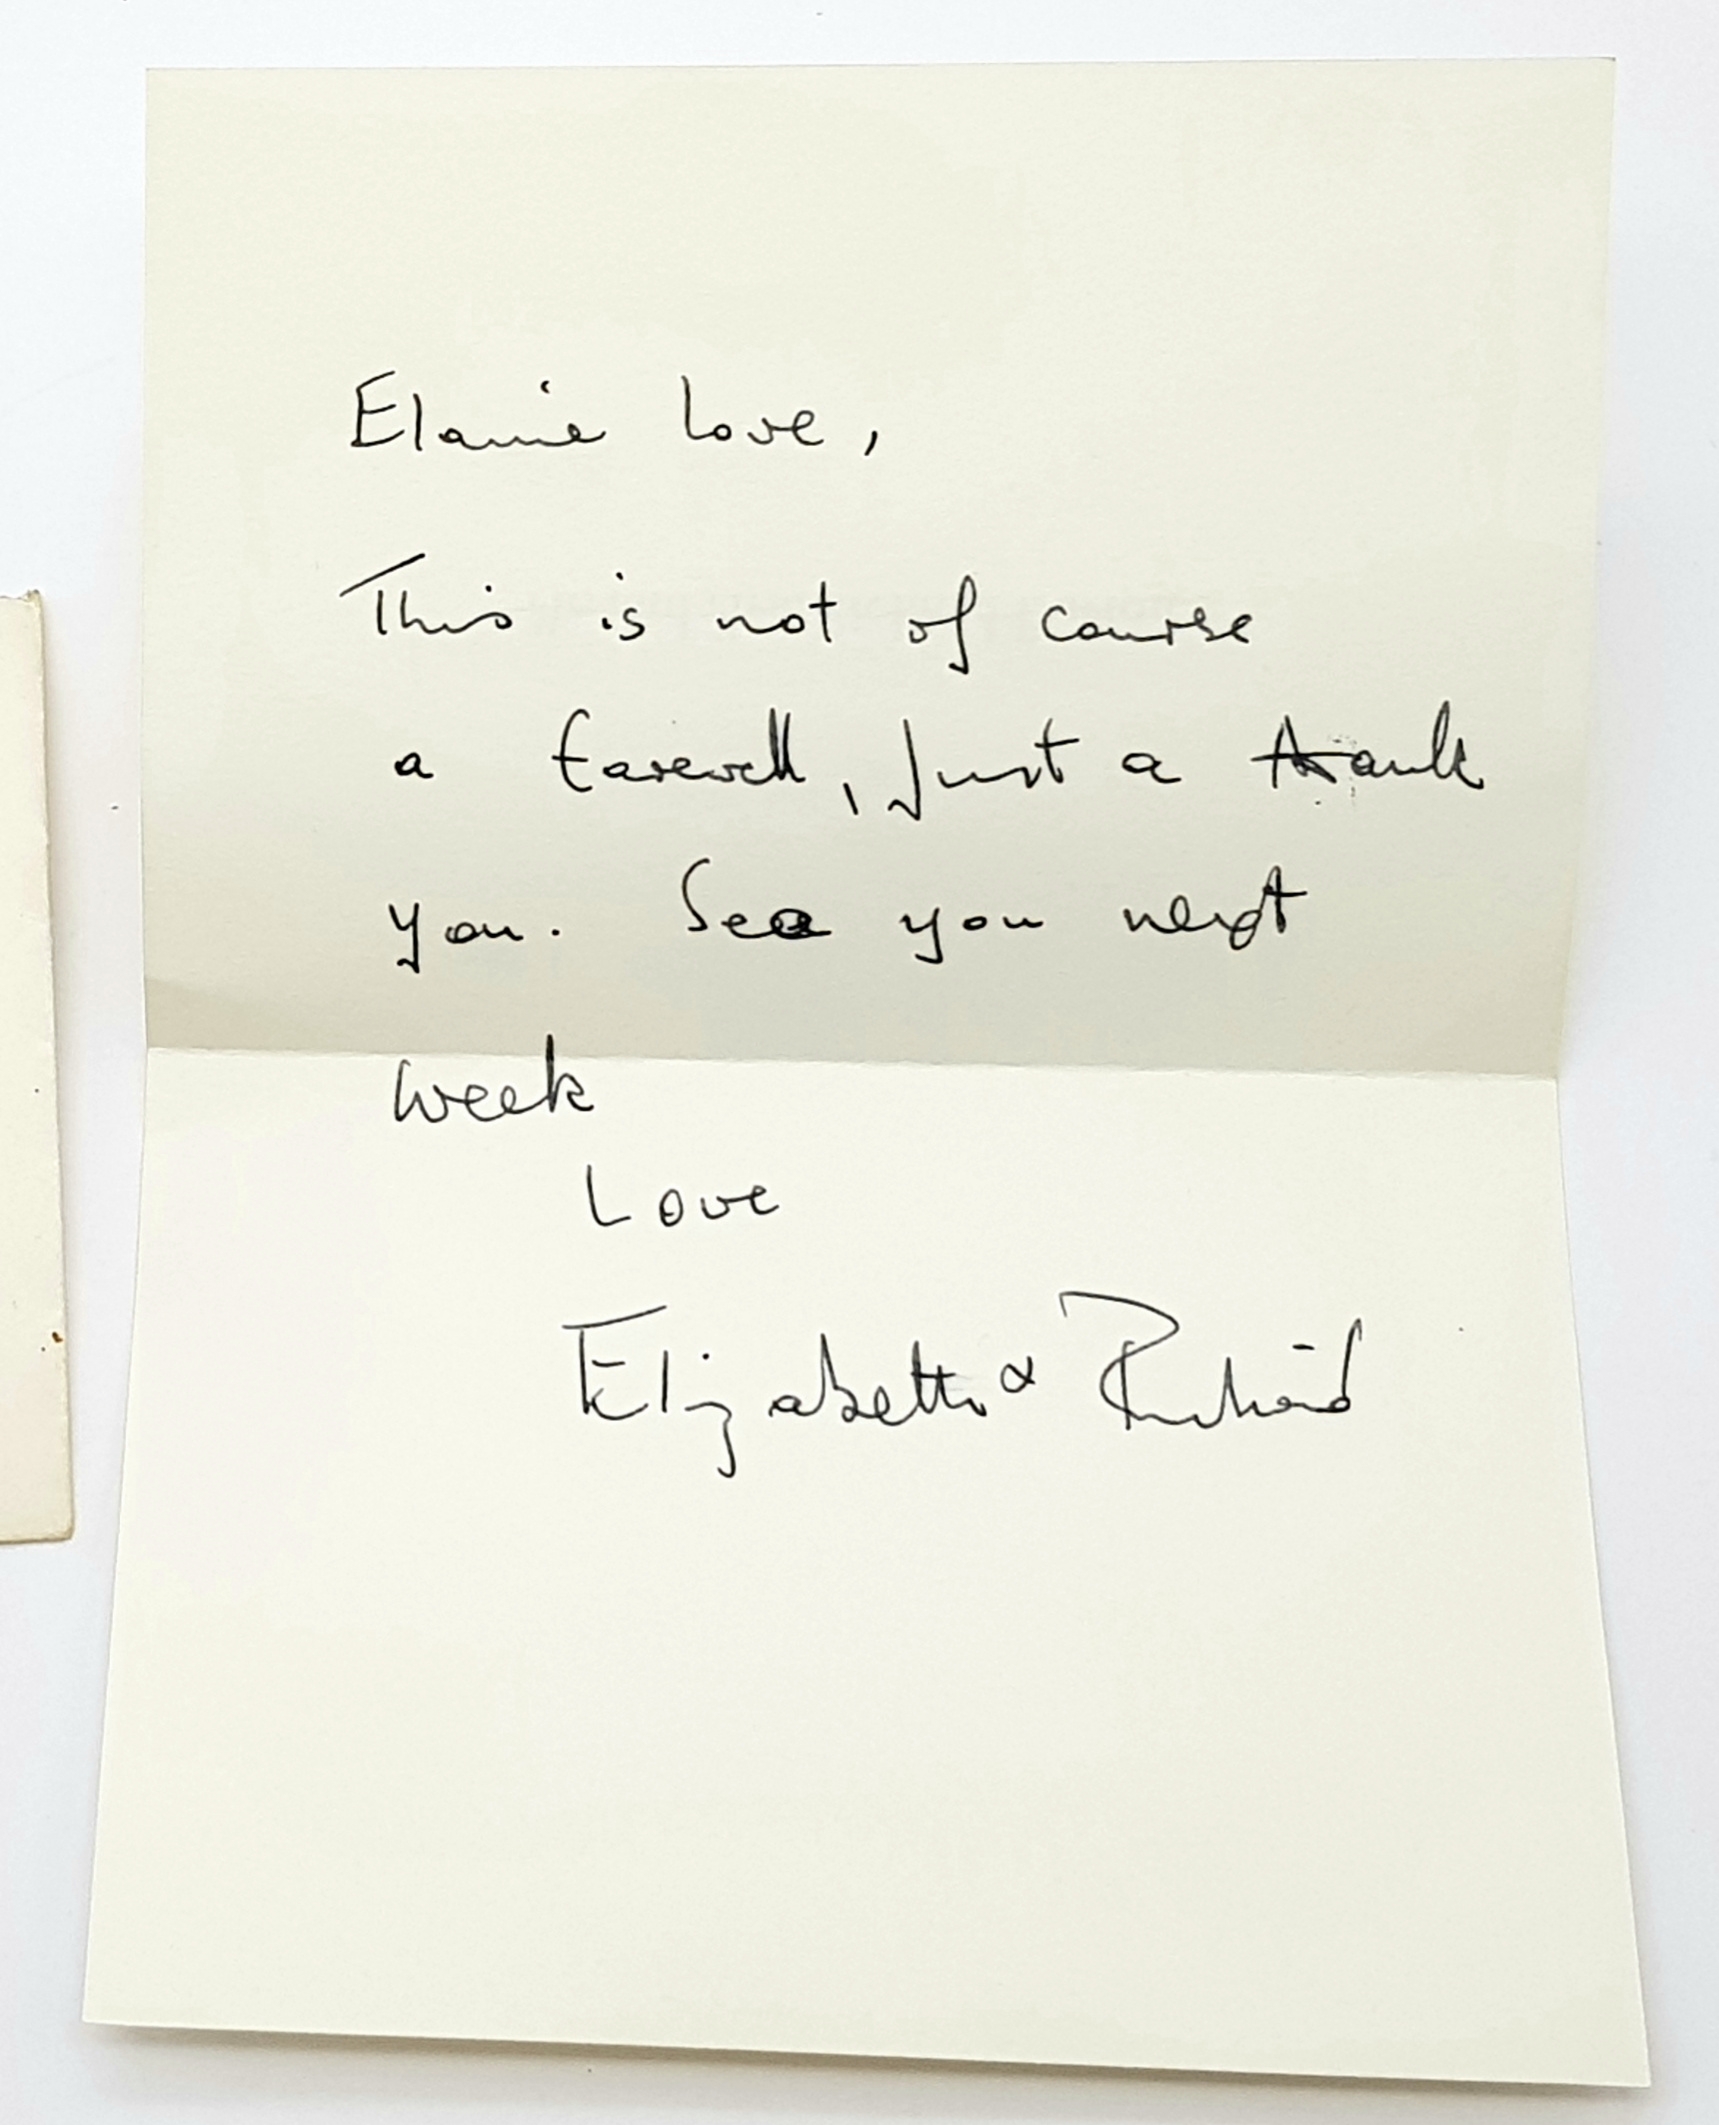 Elaine Love,
This is not of course
a farewell, just a thank
you. See you next
week
Love
Elizabeth & Richard